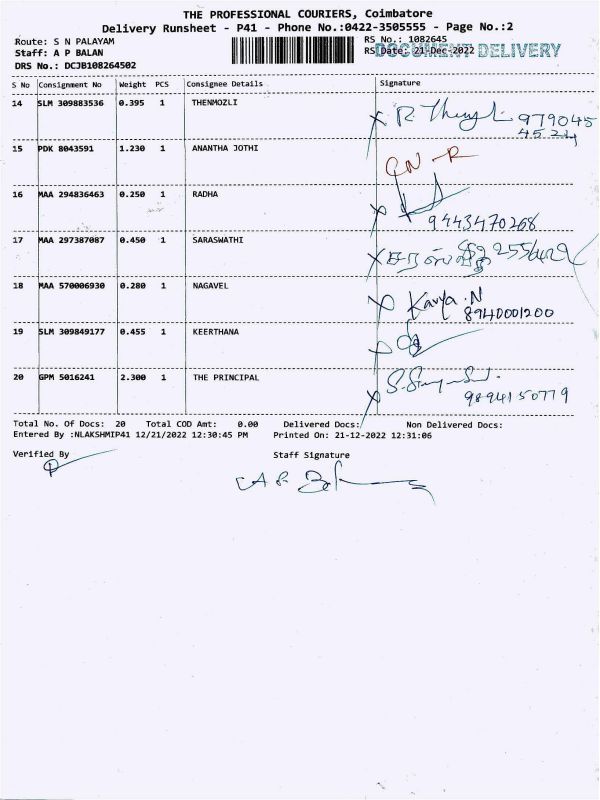 THE PROFESSIONAL COURIERS, Coimbatore
Delivery Runsheet - P41 - Phone No.:0422-3505555 - Page No.:2
Route: S N PALAYAM RS No.: 1082645
Staff: A P BALAN RS Date: 21-Dec-2022 DOCUMENT DELIVERY
DRS No.: DCJB108264502
S No Consignment No Weight PCS Consignee Details Signature
14 SLM 309883536 0.395 1 THENMOZLI
R. 979045
4524
15 PDK 8043591 1.230 1 ANANTHA JOTHI
16 MAA 294836463 0.250 1 RADHA
9443470268
17 MAA 297387087 0.450 1 SARASWATHI
18 MAA 570006930 0.280 1 NAGAVEL Kavya.N
8940001200
19 SLM 309849177 0.455 1 KEERTHANA
20 GPM 5016241 2.300 1 THE PRINCIPAL
9894150779
Total No. Of Docs: 20 Total COD Amt: 0.00 Delivered Docs: Non Delivered Docs:
Entered By :NLAKSHMIP41 12/21/2022 12:30:45 PM Printed On: 21-12-2022 12:31:06
Verified By Staff Signature